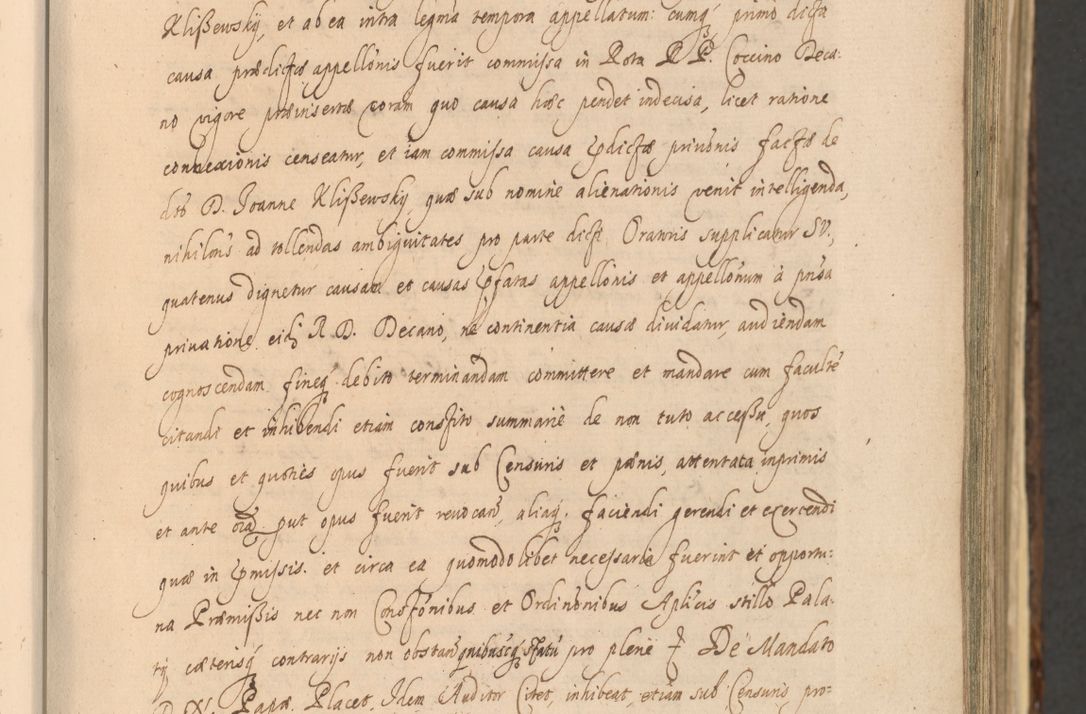 Klißewsky, et ab ea intra legma tempora appellatum: cumq̃ primo dicta
causa prædictæ appellõnis fuerit commissa in Rota R. P. Coccino Deca:
no vigore præinsertæ coram quo causa hæc pendet indecisa, licet ratione
connexionis censeatur, et iam commissa causa pdictæ priuõnis factæ de
dõ D. Joanne Klißewsky, quæ sub nomine alienationis venit intelligenda,
nihilons ad tollendas ambiguitates pro parte dicti Oratoris supplicatur SV.,
quatenus dignetur causam et causas pfatas appellõnis et appellõnum à pñsa
priuatione eid R. D. Decano, ne continentia causæ diuidatur, audiendam
cognoscendam fineq̃ debito terminandam committere et mandare cum facultẽ
citandi et inhibendi etiam constito summariè de non tuto accessu, quos
quibus et quoties opus fuerit sub Censuris et pœnis, attentata inprimis
et ante oĩa put opus fuerit reuocan̄, aliaq. faciendi gerendi et exercendi
quæ in pmissis. et circa ea quomodolibet necessaria fuerint et opportu:
na Præmißis nec non Constõnibus et Ordinõnibus Aplicis stillo Pala:
tij cæterisq̃ contrarijs non obstan̄ quibuscq̃ pro plenè De Mandato
D. N. Papæ. Placet. Idem Auditor Citet, inhibeat, etiam sub Censuris, pro=